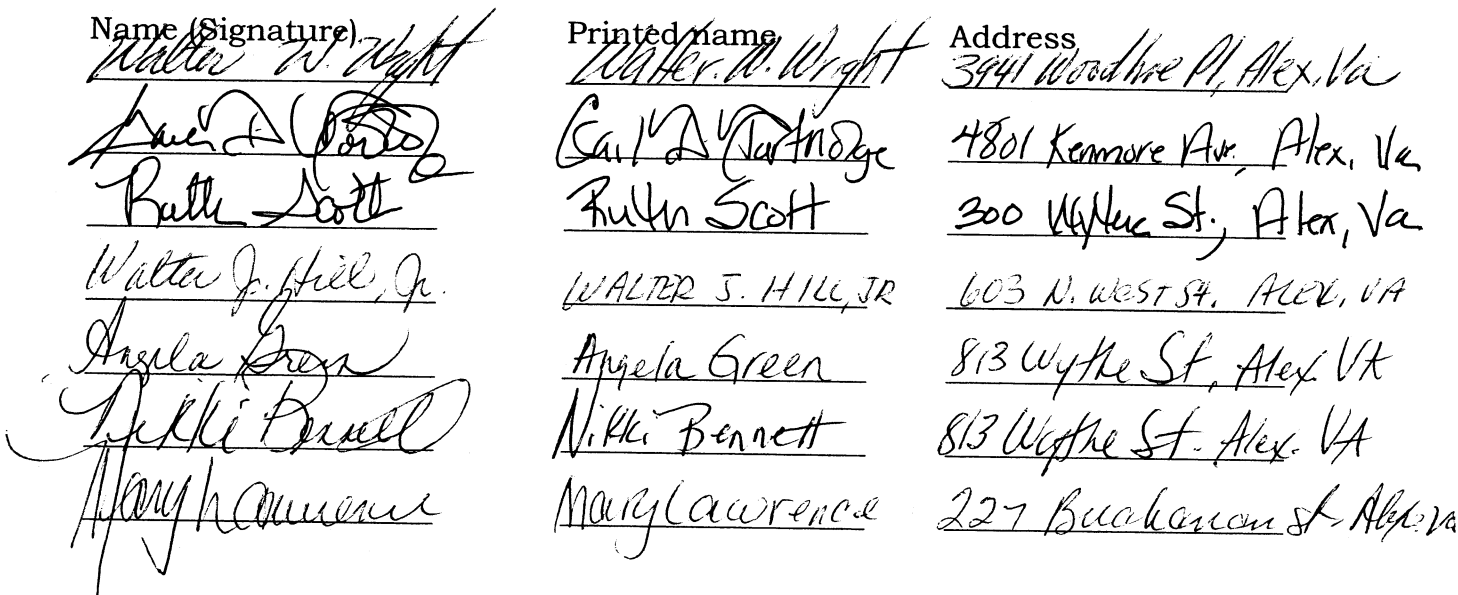 Name (Signature) Printed name Address
Walter W. Wright Walter. W. Wright 3941 Pl, Alex, Va
Carl D Partridge 4801 Kenmore Ave, Alex, Va
Ruth Scott Ruth Scott 300 Wythe St., Alex, Va
Walter J. Hill, Jr. WALTER J. HILL, JR 603 N. WEST St. ALEX, VA
Angela Green Angela Green 813 Wythe St, Alex. VA
Nikki Bennett Nikki Bennett 813 Wythe St. Alex. VA
Mary Lawrence Mary Lawrence 227 Buchanan st Alex. Va